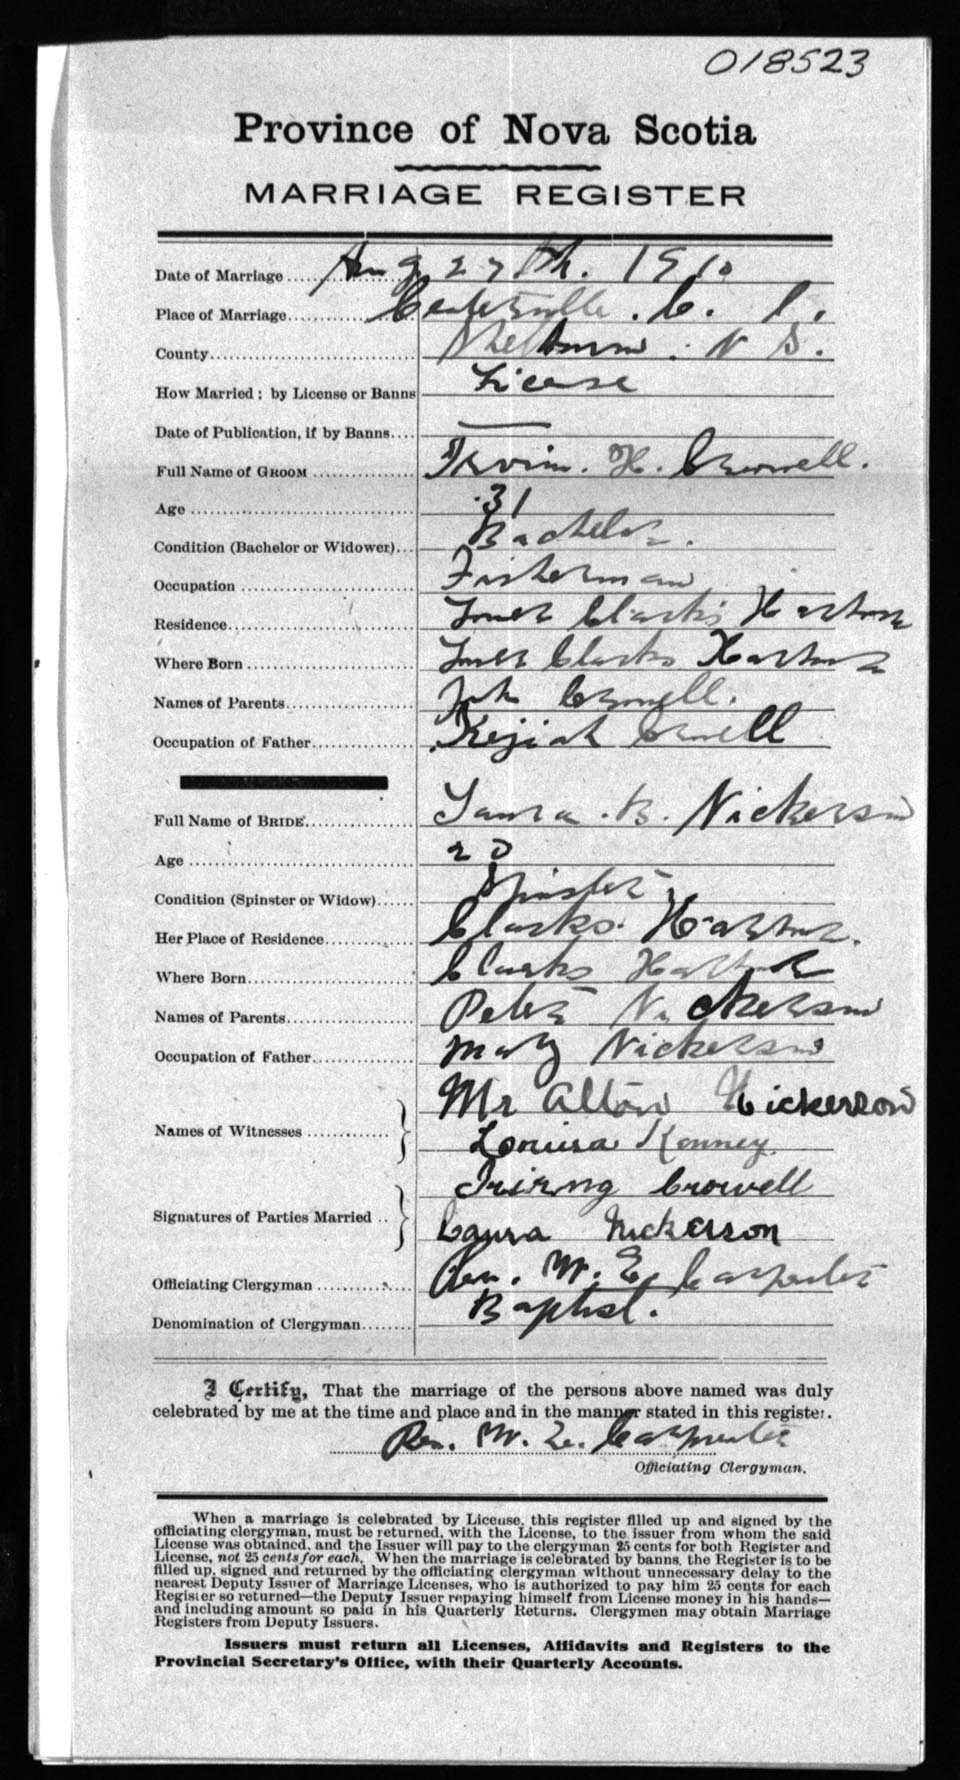 018523
Province of Nova Scotia
MARRIAGE REGISTER
Date of Marriage Aug 27th. 1910
Place of Marriage Centerville. C. I.
County Shelburne. N S.
How Married: by License or Banns License
Date of Publication, if by Banns —
Full Name of GROOM H. Crowell.
Age 31
Condition (Bachelor or Widower) Bachelor.
Occupation Fisherman
Residence Clarks Harbour
Where Born Clarks Harbour
Names of Parents John Crowell.
Occupation of Father Keziah Crowell
Full Name of BRIDE Laura. B. Nickerson
Age 20
Condition (Spinster or Widow) Spinster
Her Place of Residence Clarks. Harbour.
Where Born Clarks Harbour
Names of Parents Peter Nickerson
Occupation of Father Mary Nickerson
Names of Witnesses } Mr Alton Nickerson
Louisa Kenney.
Signatures of Parties Married } Crowell
Laura Nickerson
Officiating Clergyman Rev. W. E. Carpenter
Denomination of Clergyman Baptist.
I Certify, That the marriage of the persons above named was duly
celebrated by me at the time and place and in the manner stated in this register.
Rev. W. E. Carpenter
Officiating Clergyman.
When a marriage is celebrated by License, this register filled up and signed by the
officiating clergyman, must be returned, with the License, to the issuer from whom the said
License was obtained, and the Issuer will pay to the clergyman 25 cents for both Register and
License, not 25 cents for each. When the marriage is celebrated by banns, the Register is to be
filled up, signed and returned by the officiating clergyman without unnecessary delay to the
nearest Deputy Issuer of Marriage Licenses, who is authorized to pay him 25 cents for each
Register so returned—the Deputy Issuer repaying himself from License money in his hands—
and including amount so paid in his Quarterly Returns. Clergymen may obtain Marriage
Registers from Deputy Issuers.
Issuers must return all Licenses, Affidavits and Registers to the
Provincial Secretary's Office, with their Quarterly Accounts.